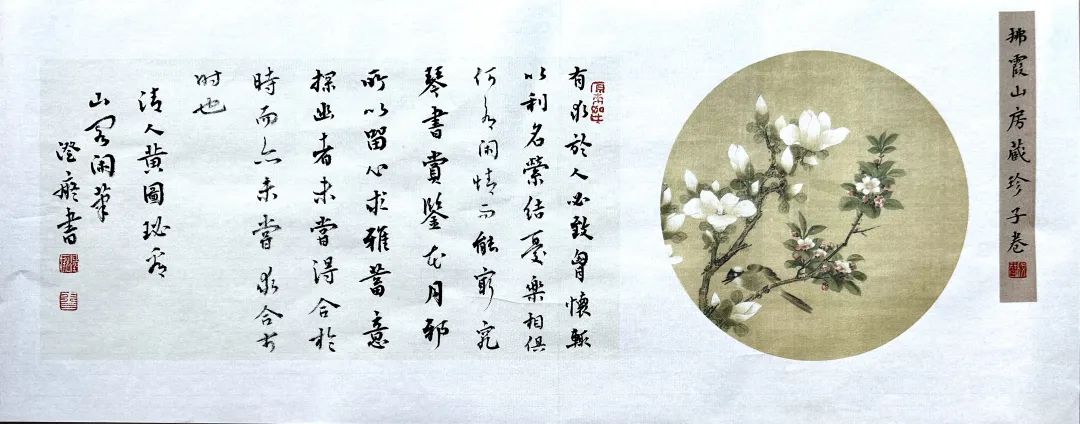 拂霞山房藏珍子卷
有求於人必致胷懷輒
以利名縈結憂樂相俱
何有閑情而能窮究
琴書賞鑒花月邪
所以留心求雅蓄意
探幽者未嘗得合於
時而亦未嘗求合於
時也
清人黃圖珌看
山閣閑筆
澄書